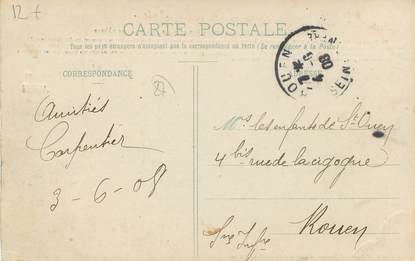 12 +
CARTE POSTALE
Tous les pays étrangers n'acceptant pas la correspondance au recto (Se renseigner à la Poste)
CORRESPONDANCE
ROUEN
08
SEINE
Amitiés
Carpentier
3-6-08
Mrs les enfants de St Ouen
4 bis rue de la cigogne
Rouen
Sne Infre